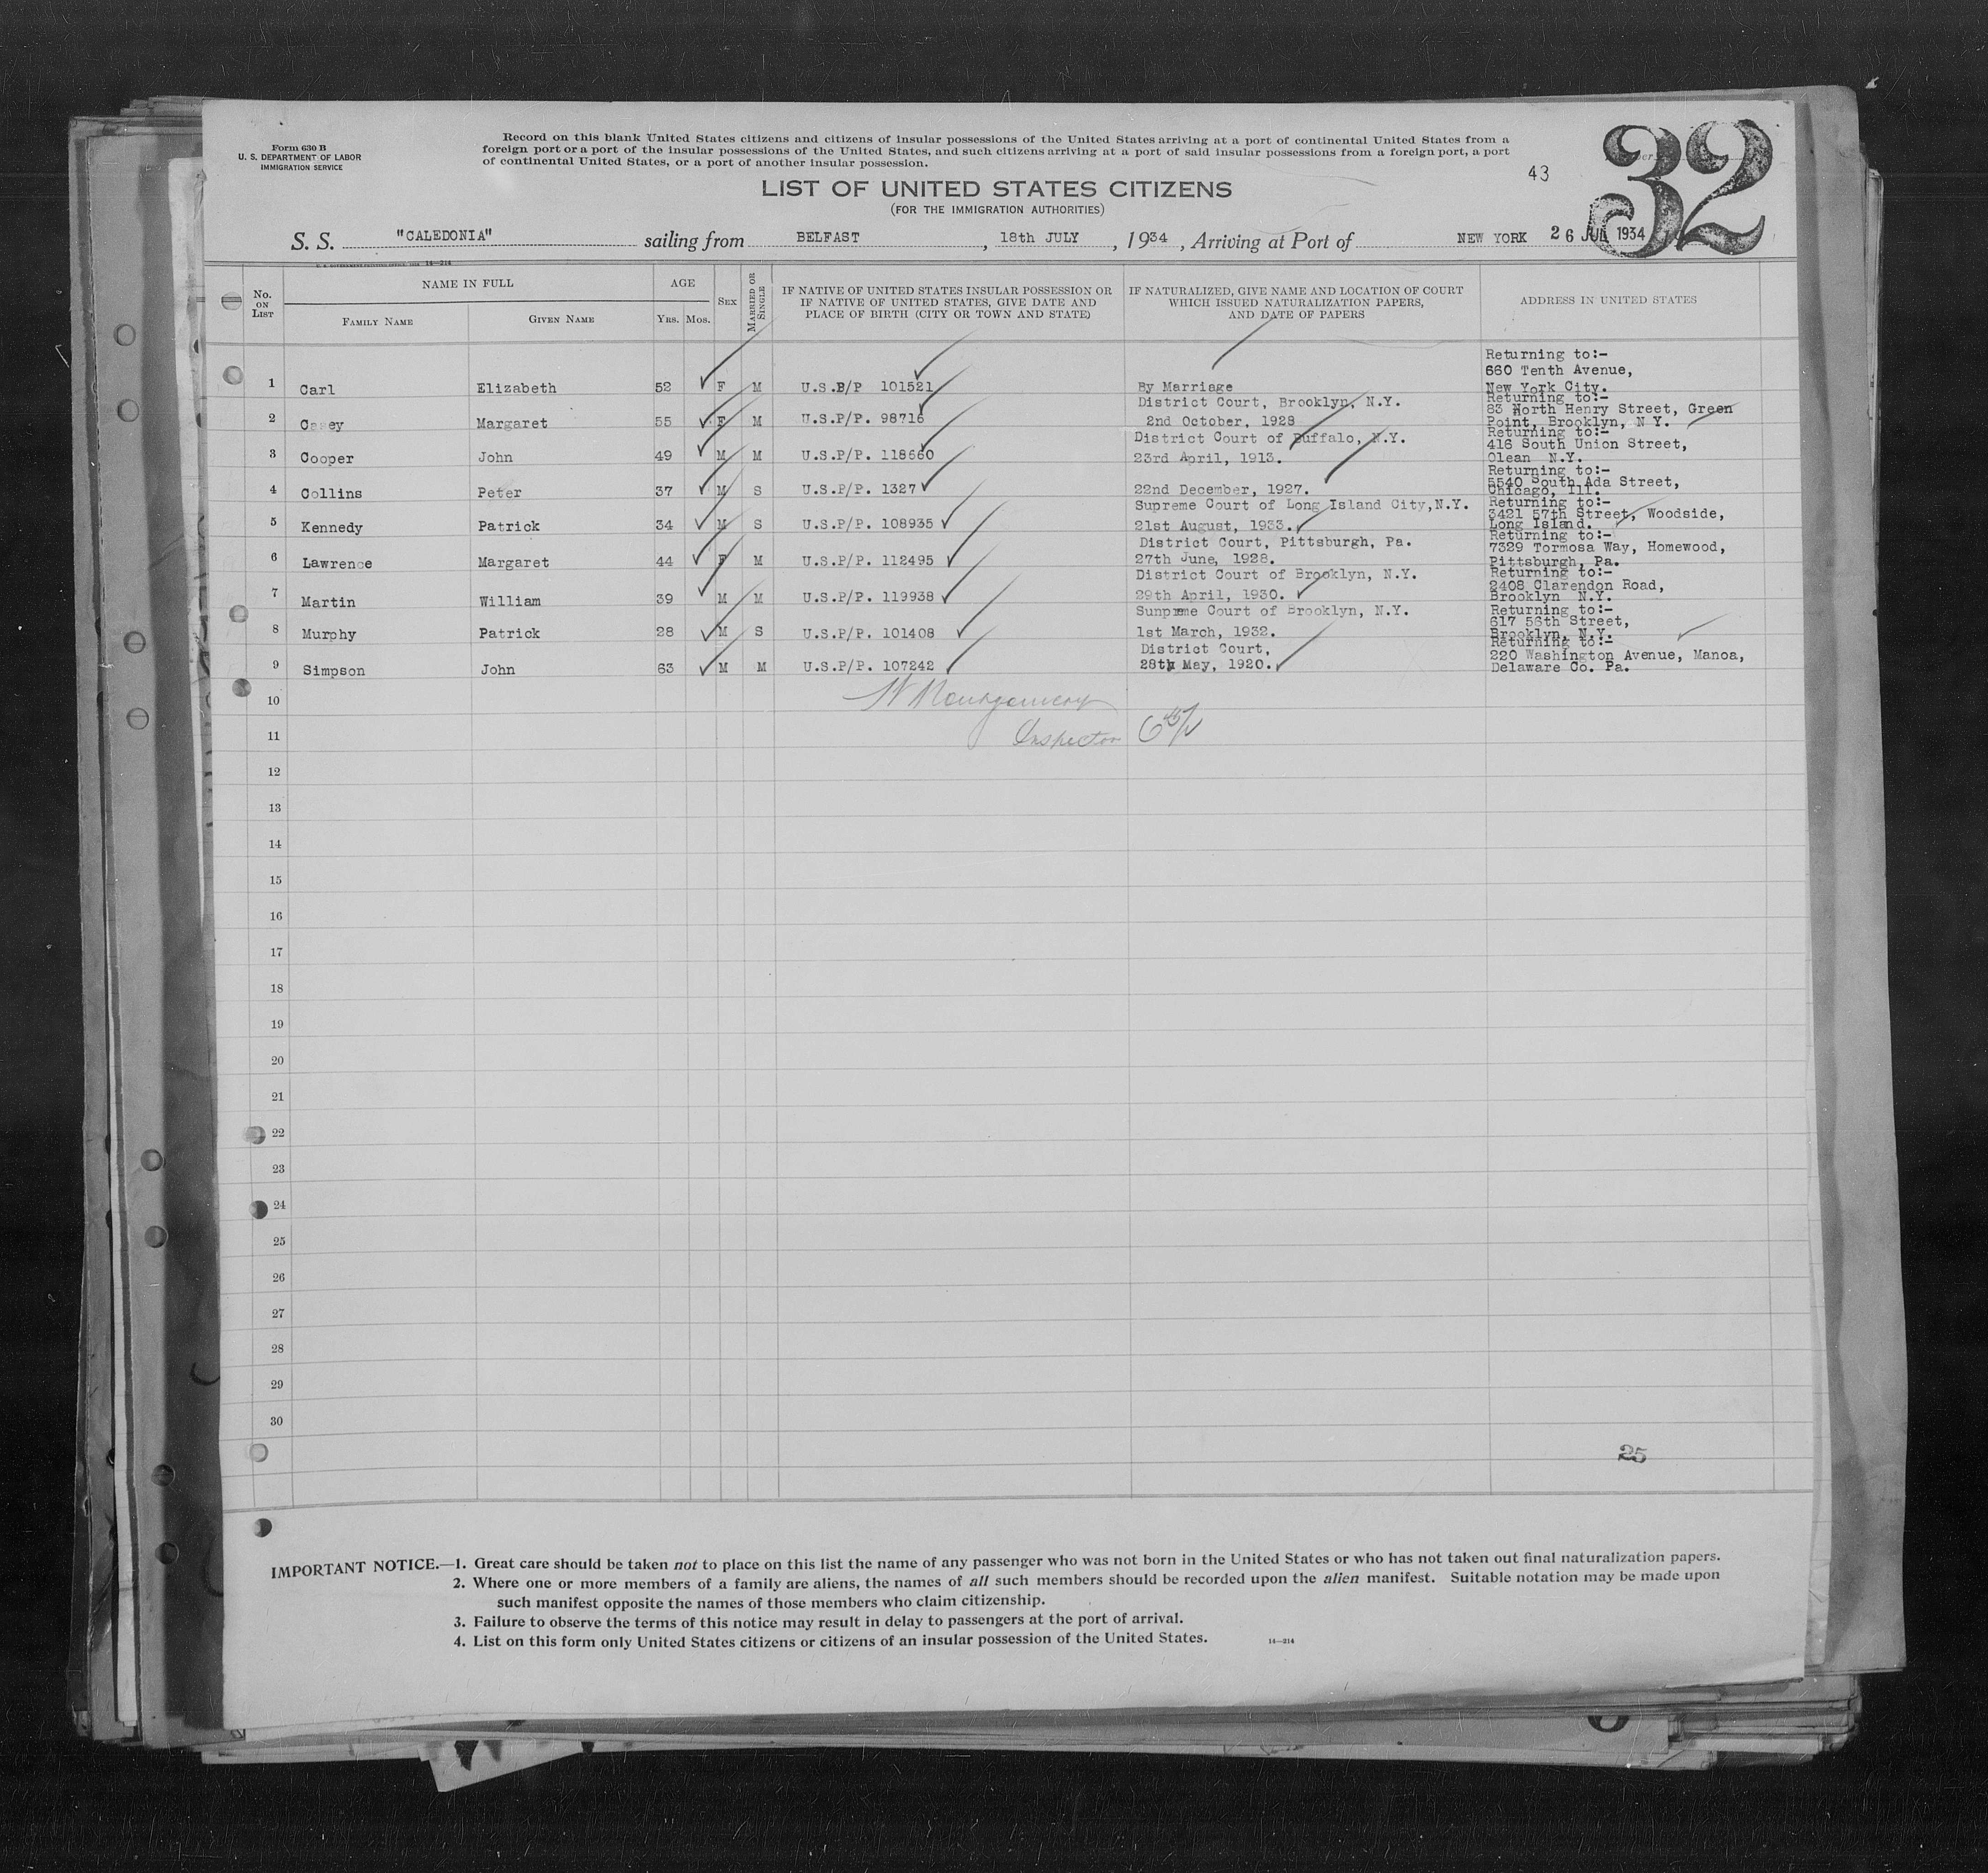 Form 630 B
U. S. DEPARTMENT OF LABOR
IMMIGRATION SERVICE
Record on this blank United States citizens and citizens of insular possessions of the United States arriving at a port of continental United States from a
foreign port or a port of the insular possessions of the United States, and such citizens arriving at a port of said insular possessions from a foreign port, a port
of continental United States, or a port of another insular possession.
43
32
LIST OF UNITED STATES CITIZENS
(FOR THE IMMIGRATION AUTHORITIES)
S. S. "CALEDONIA" sailing from BELFAST, 18th JULY, 1934, Arriving at Port of NEW YORK 26 JUL 1934
No. ON LIST
NAME IN FULL
FAMILY NAME
GIVEN NAME
AGE
YRS. MOS.
SEX
MARRIED OR SINGLE
IF NATIVE OF UNITED STATES INSULAR POSSESSION OR
IF NATIVE OF UNITED STATES, GIVE DATE AND
PLACE OF BIRTH (CITY OR TOWN AND STATE)
IF NATURALIZED, GIVE NAME AND LOCATION OF COURT
WHICH ISSUED NATURALIZATION PAPERS,
AND DATE OF PAPERS
ADDRESS IN UNITED STATES
Returning to:-
660 Tenth Avenue,
1 Carl Elizabeth 52 F M U.S.P/P 101521 By Marriage New York City.
District Court, Brooklyn, N.Y. Returning to:-
83 North Henry Street, Green
2 Casey Margaret 55 F M U.S.P/P. 98716 2nd October, 1928 Point, Brooklyn, N Y.
District Court of Buffalo, N.Y. Returning to:-
416 South Union Street,
3 Cooper John 49 M M U.S.P/P. 118660 23rd April, 1913. Olean N.Y.
Returning to:-
5540 South Ada Street,
4 Collins Peter 37 M S U.S.P/P. 1327 22nd December, 1927. Chicago, Ill.
Supreme Court of Long Island City,N.Y. Returning to:-
3421 57th Street, Woodside,
5 Kennedy Patrick 34 M S U.S.P/P. 108935 21st August, 1933. Long Island.
District Court, Pittsburgh, Pa. Returning to:-
7329 Tormosa Way, Homewood,
6 Lawrence Margaret 44 F M U.S.P/P. 112495 27th June, 1928. Pittsburgh, Pa.
District Court of Brooklyn, N.Y. Returning to:-
2408 Clarendon Road,
7 Martin William 39 M M U.S.P/P. 119938 29th April, 1930. Brooklyn N.Y.
Sunpreme Court of Brooklyn, N.Y. Returning to:-
617 56th Street,
8 Murphy Patrick 28 M S U.S.P/P. 101408 1st March, 1932. Brooklyn, N.Y.
District Court, Returning to:-
220 Washington Avenue, Manoa,
9 Simpson John 63 M M U.S.P/P. 107242 28th May, 1920. Delaware Co. Pa.
10 Montgomery
11 Inspector
12
13
14
15
16
17
18
19
20
21
22
23
24
25
26
27
28
29
30
25
IMPORTANT NOTICE.—1. Great care should be taken not to place on this list the name of any passenger who was not born in the United States or who has not taken out final naturalization papers.
2. Where one or more members of a family are aliens, the names of all such members should be recorded upon the alien manifest. Suitable notation may be made upon
such manifest opposite the names of those members who claim citizenship.
3. Failure to observe the terms of this notice may result in delay to passengers at the port of arrival.
4. List on this form only United States citizens or citizens of an insular possession of the United States. 14—214